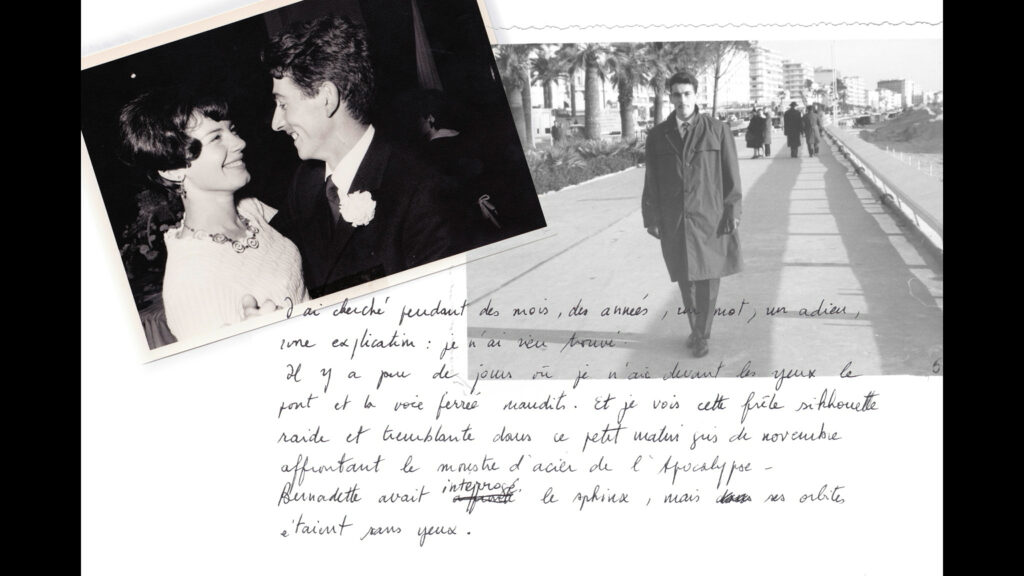 J'ai cherché pendant des mois, des années, un mot, un adieu,
une explication : je n'ai rien trouvé.
Il y a peu de jours où je n'aie devant les yeux le
pont et la voie ferrée maudits. Et je vois cette frêle silhouette
raide et tremblante dans ce petit matin gris de novembre
affrontant le monstre d'acier de l'Apocalypse -
Bernadette avait interrogé le sphinx, mais ses orbites
étaient sans yeux.